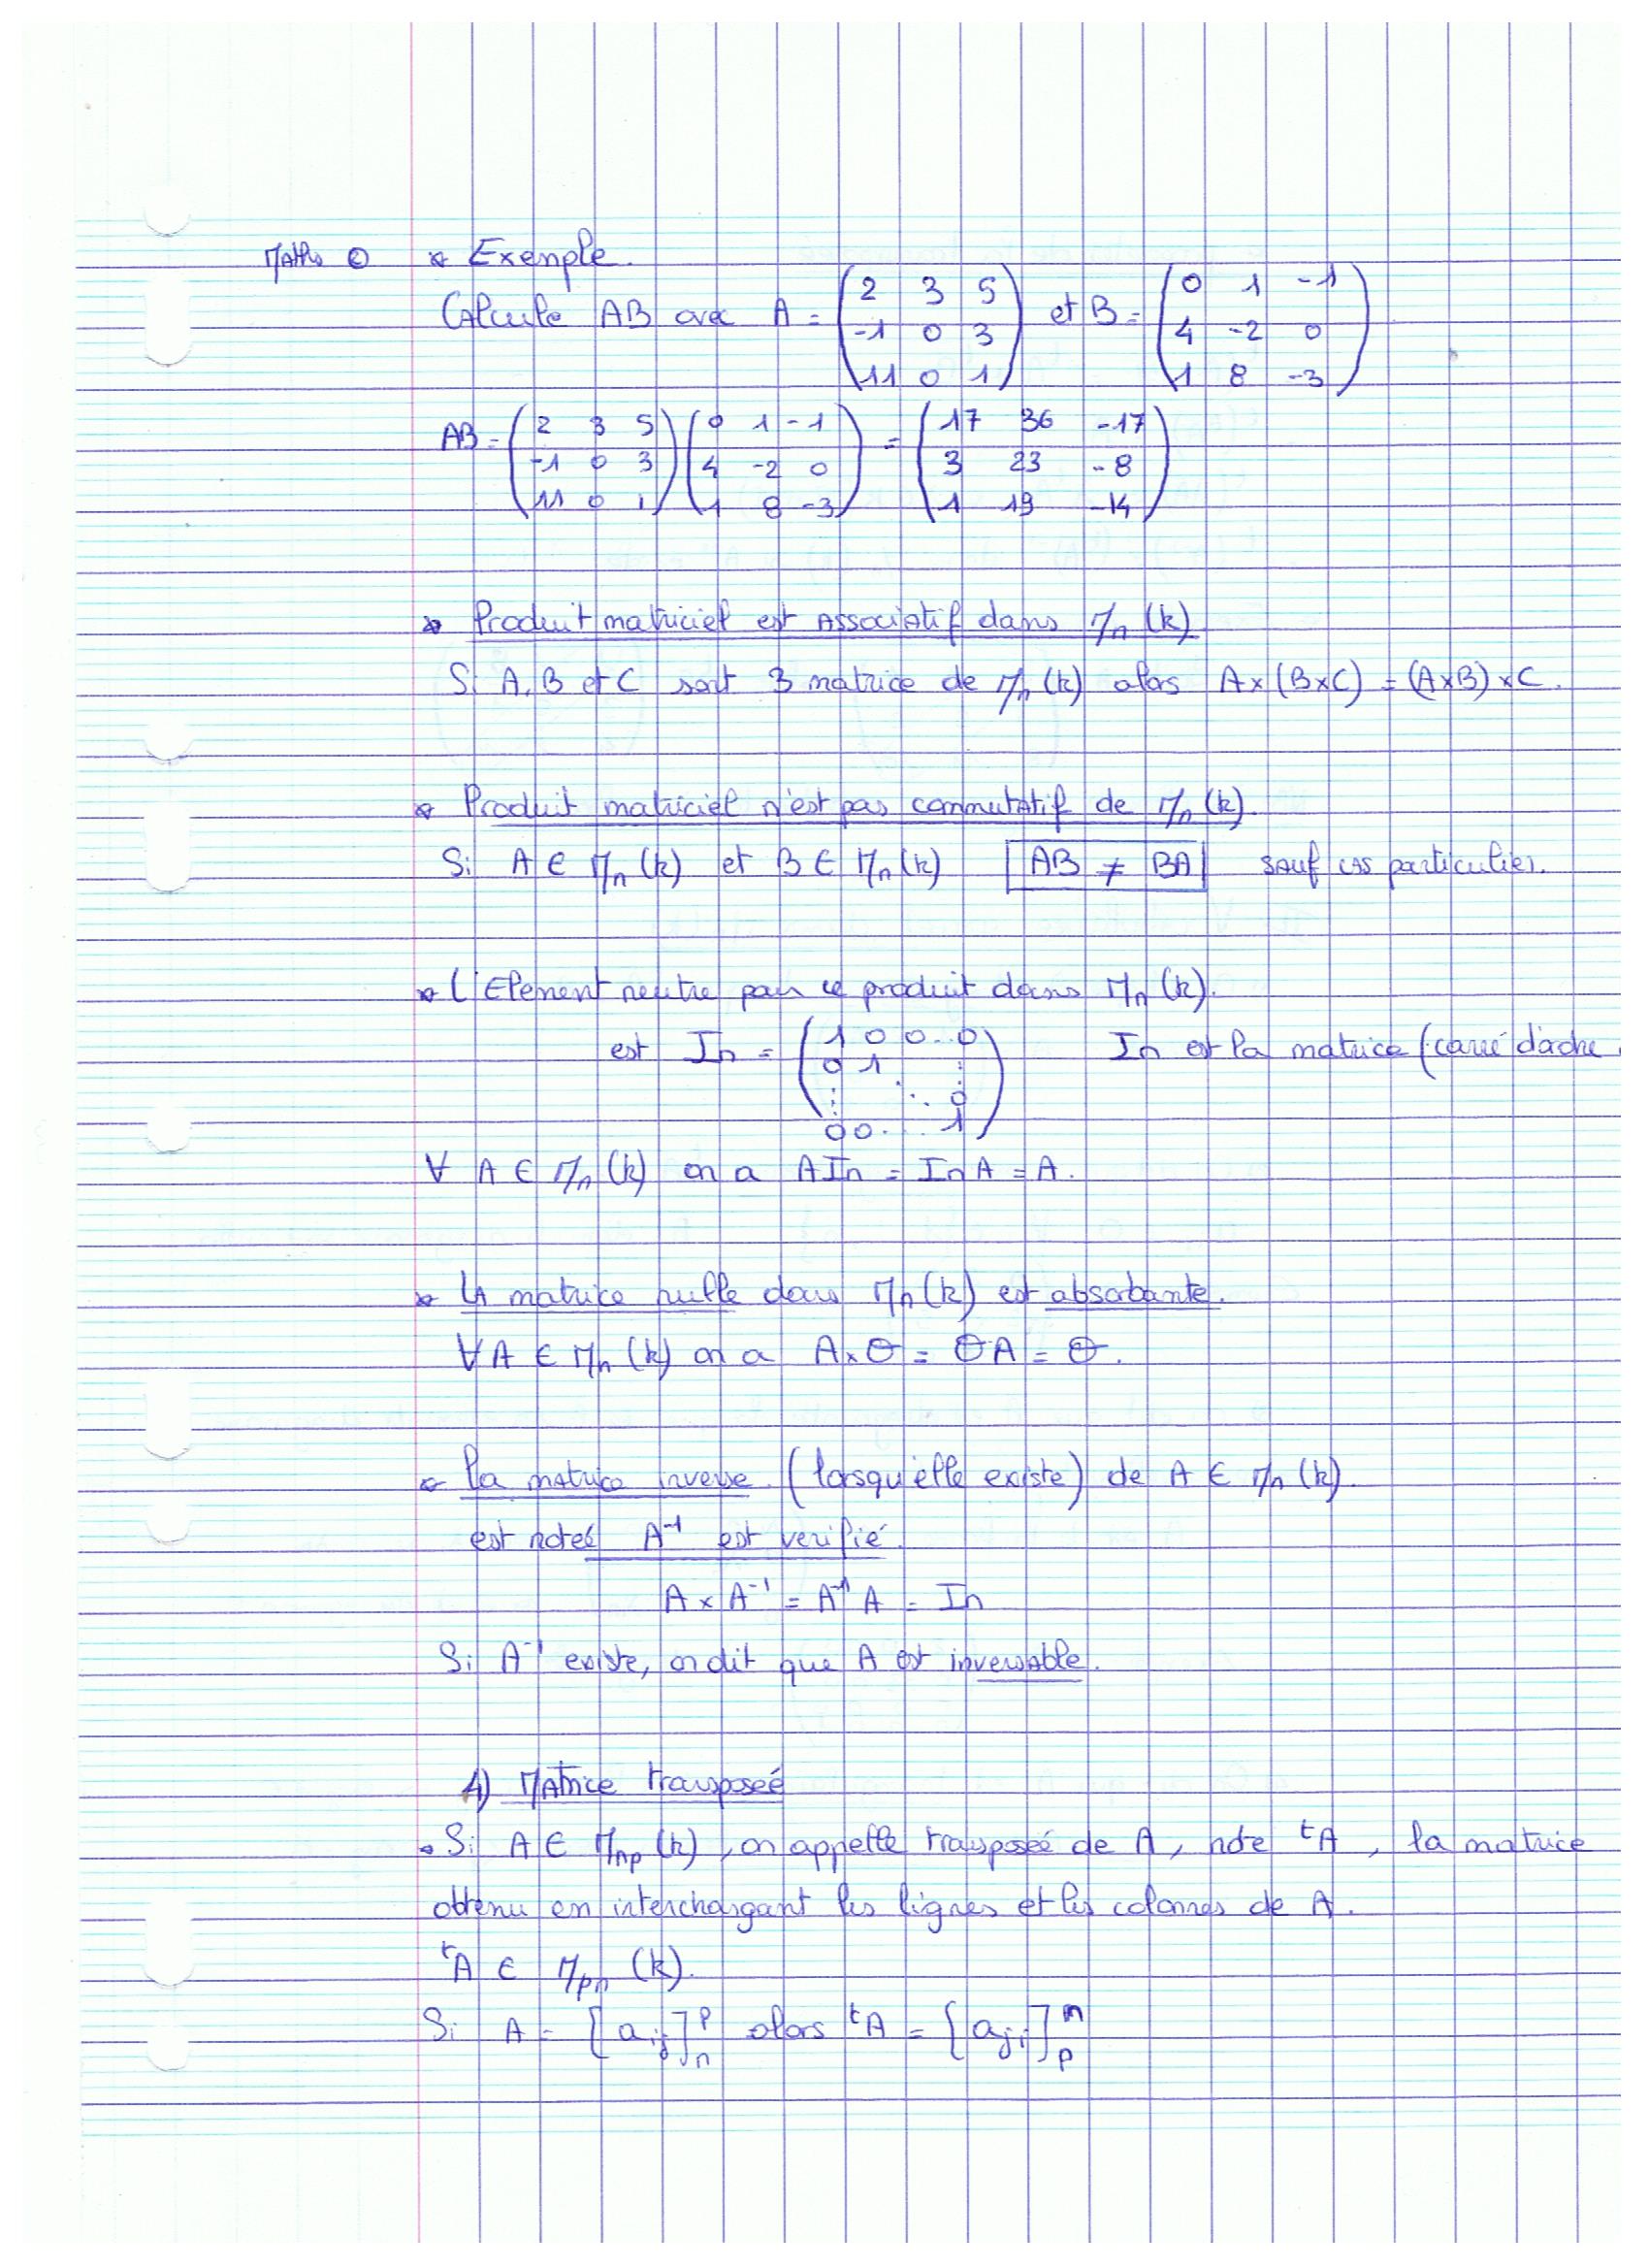 Maths ©
* Exemple.
Calcule AB avec A = (2 3 5 / -1 0 3 / 11 0 1) et B = (0 1 -1 / 4 -2 0 / 1 8 -3)
AB = (2 3 5 / -1 0 3 / 11 0 1) (0 1 -1 / 4 -2 0 / 1 8 -3) = (17 36 -17 / 3 23 -8 / 1 19 -14)
* Produit matriciel est associatif dans Mn (k)
Si A, B et C sont 3 matrice de Mn (k) alors A x (B x C) = (A x B) x C.
* Produit matriciel n'est pas commutatif de Mn (k).
Si A ∈ Mn (k) et B ∈ Mn (k) AB ≠ BA sauf cas particulier.
* L'Element neutre pour ce produit dans Mn (k).
est In = (1 0 0..0 / 0 1 : / : ·.. 0 / 0 0... 1) In est la matrice (carré d'odre
∀ A ∈ Mn (k) on a AIn = InA = A.
* La matrice nulle dans Mn (k) est absorbante.
∀ A ∈ Mn (k) on a A x Θ = ΘA = Θ.
* La matrice inverse (lorsqu'elle existe) de A ∈ Mn (k).
est noteé A⁻¹ est verifié.
A x A⁻¹ = A⁻¹ A = In
Si A⁻¹ existe, on dit que A est inversable.
4) Matrice transposeé
• Si A ∈ Mnp (k), on appelle transposeé de A, note ᵗA, la matrice
obtenu en interchangant les lignes et les colonnes de A.
ᵗA ∈ Mpn (k).
Si A = [aij]ᵖₙ alors ᵗA = [aji]ⁿₚ